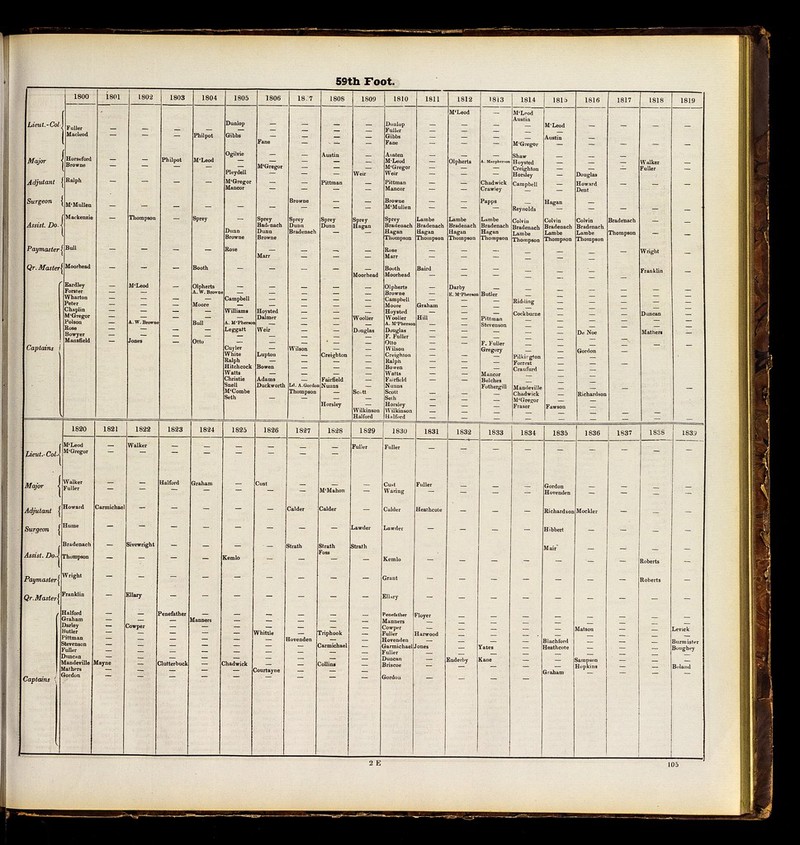 59th Foot.
1800 1801 1802 1803 1804 1805 1806 18 7 1808 1809 1810 1811 1812 1813 1814 1815 1816 1817 1818 1819
M'Leod — M'Leod
Austin
Lieut.-Col. Dunlop — — — — Dunlop — — — — M'Leod
Fuller — — — — Fuller
Macleod — — — Philpot Gibbs — — — — Gibbs — — — — Austin
Fane — — — Fane — — — M'Gregor
Major Horseford — — Philpot M'Leod Ogilvie — — Austin — Austen — Olpherts A. Macpherson Shaw
Browne M'Gregor — — — M'Leod Hoysted — — — Walker
M'Gregor Creighton — — — Fuller
Pleydell — — — Weir Weir Horsley — Douglas
Adjutant Ralph — — — — M'Gregor — — Pittman — Pittman — — Chadwick Campbell — Howard
Mancor — — — — Mancor — — Crawley — — Dent
Surgeon M'Mullen Browne — — Browne — — Pappa — Hagan
M'Mullen — — — Reynolds
Assist. Do. Mackenzie — Thompson — Sprey — Sprey Sprey Sprey Sprey Sprey Lambe Lambe Lambe Colvin Colvin Colvin Bradenach
Dunn Dunn Dunn Hagan Bradenach Bradenach Bradenach Bradenach Bradenach Bradenach Bradenach
Dunn Browne Bradenach Hagan Hagan Hagan Hagan Lambe Lambe Lambe Thompson
Browne Thompson Thompson Thompson Thompson Thompson Thompson Thompson
Paymaster Bull — — — — Rose — — — — Rose — — — — — — — Wright
Marr — — — Marr
Qr. Master Moorhead — — — Booth — — — — — Booth Baird — — — — — — Franklin
Moorhead Moorhead
Captains Eardley — M'Leod — Olpherts — — — — — Olpherts — Darby
Forster A. W. Browne Browne — E. M'Pherson Butler
Wharton Campbell — — — — Campbell — — — Ridding
Peter Moore — — — — — Moore Graham
Chaplin Williams Hoysted — — — Hoysted — — — Cockburne — — — Duncan
M'Gregor Dalmer — — Woolier Woolier Hill — Pittman
Polson — A. W. Browne — Bull A. M'Pherson — — — — A. M'Pherson — — Stevenson
Rose Leggatt Weir — — Douglas Douglas — — — — — De Noe — Mathers
Bowyer F. Fuller
Mansfield — Jones — Otto — — — — — Otto — — F. Fuller
Cuyler — Wilson — — Wilson — — Gregory — — Gordon
White Lupton — Creighton — Creighton — — — Pilkington
Ralph — — — — Ralph — — — Forrest
Hitchcock Bowen — — — Bowen — — — Cranfurd
Watts — — — — Watts — — Mancor
Christie Adams — Fairfield — Fairfield — — Belches
Snell Duckworth Ld. A. Gordon Nunns — Nunns — — Fothergill Mandeville
M'Combe — Thompson — Scott Scott — — — Chadwick — Richardson
Seth — — — — Seth — — — M'Gregor
Horsley — Horsley — — — Fraser Fawson
Wilkinson Wilkinson
Halford Halford
1820 1821 1822 1823 1824 1825 1826 1827 1828 1829 1830 1831 1832 1833 1834 1835 1836 1837 1838 1839
Lieut.-Col. M'Leod — Walker — — — — — — Fuller Fuller — — — — — — — — —
M'Gregor — — — — — — — —
Major Walker — — Halford Graham — Cust — — — Cust Fuller — — — Gordon
Fuller — — — — — — — M'Mahon — Waring — — — — Hovenden
Adjutant Howard Carmichael — — — — — Calder Calder — Calder Heathcote — — — Richardson Mockler
Surgeon Hume — — — — — — — — Lawder Lawder — — — — Hibbert
Assist. Do. Bradenach — Sivewright — — — — Strath Strath Strath — — — — — Mair
Foss
Thompson — — — — Kemlo — — — — Kemlo — — — — — — — Roberts
Paymaster Wright — — — — — — — — — Grant — — — — — — — Roberts
Qr. Master Franklin — Ellary — — — — — — — Ellary
Captains Halford — — Penefather — — — — — — Penefather Floyer
Graham — — — Manners — — — — — Manners
Darley — Cowper — — — — — — — Cowper — — — — — Matson — — Levick
Butler — — — — — Whittle — Triphook — Fuller Harwood
Pittman — — — — — — Hovenden — — Hovenden — — — — Blachford — — — Burmister
Stevenson — — — — — — — Carmichael — Garmichael Jones — Yates — Heathcote — — — Boughey
Fuller — — — — — — — — — Fuller
Duncan — — — — — — — — — Duncan — Enderby Kane — — Sampson
Mandeville Mayne — Clutterbuck — Chadwick — — Collins — Briscoe — — — — — Hopkins — — Boland
Mathers — — — — — Courtayne — — — — — — — — Graham
Gordon — — — — — — — — — Gordon
2 E
105